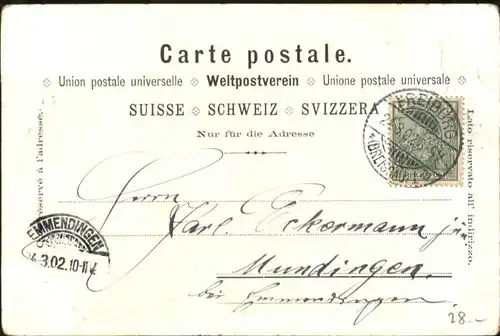 Carte postale.
Union postale universelle Weltpostverein Unione postale universale
SUISSE SCHWEIZ SVIZZERA
Nur für die Adresse
réservé à l'adresse.
Lato riservato all' indirizzo.
FREIBURG
(BREISGAU)
Herrn
Karl Eckermann jun.
Mundingen.
bei Emmendingen.
EMMENDINGEN
4.3.02.10-11V
28.-